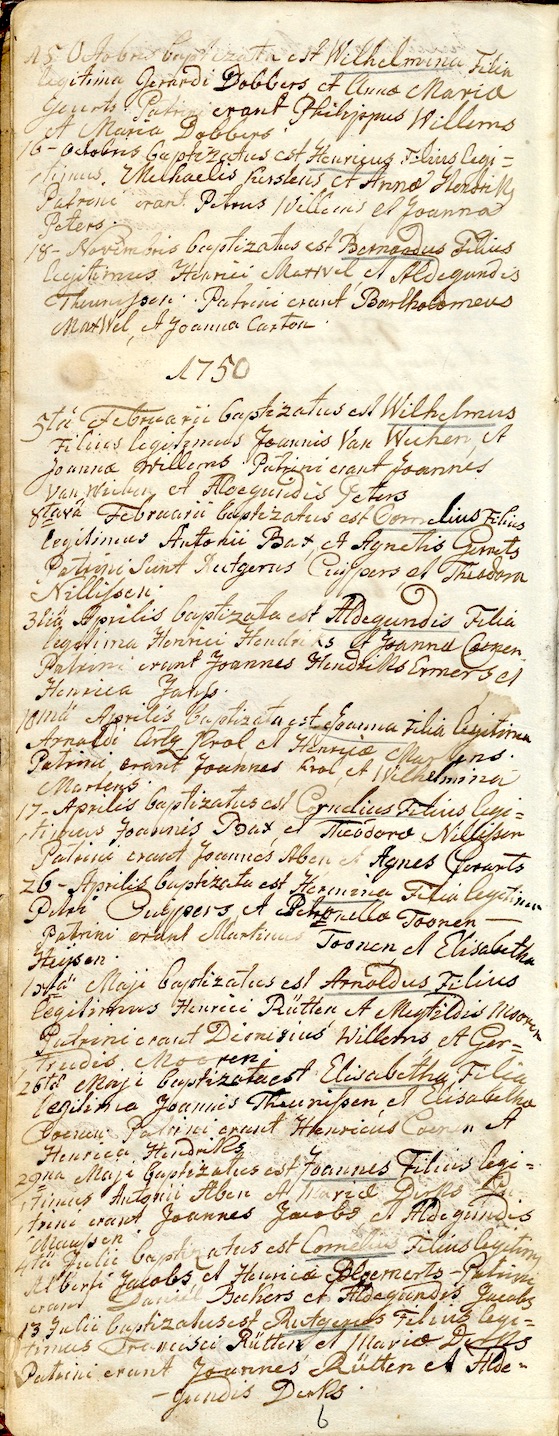 15 Octobris baptizata est Wilhelmina Filia
legitima Gerardi Dobbers, et Annæ Mariæ
Geurts Patrini erant Philippus Willems
et Maria Dobbers.
16 - Octobris baptizatus est Henricus Filius legi=
timus Michaelis Kerstens, et Annæ Hendriks
Patrini erant Petrus Willems et Joanna
Peters.
18 - Novembris baptizatus est Bernardus Filius
legitimus Henrici Maxwel, et Aldegundis
Theunissen. Patrini erant Bartholomeus
Maxwel, et Joanna Carton.
1750
5ta Februarii baptizatus est Wilhelmus
Filius legitimus Joannis Van Wichen, et
Joannæ Willems. Patrini erant Joannes
Van Wichen et Aldegundis Peters
8tava Februarii baptizatus est Cornelius Filius
legitimus Antonii Bax, et Agnetis Gerats
Patrini sunt Rutgerus Cuijpers et Theodora
Nillissen.
3tia Aprilis baptizata est Aldegundis Filia
legitima Henrici Hendriks et Joannæ Coenen
Patrini erant Joannes Hendriks Ermers et
Henrica
10ma Aprilis baptizata est Joanna Filia legitima
Arnoldi Krol et Henricæ Martens.
Patrini erant Joannes Krol et Wilhelmina
Martens.
17 - Aprilis baptizatus est Cornelius Filius legi=
timus Joannis Bax et Theodoræ Nillissen
Patrini erant Joannes Aben et Agnes Gerarts
26 - Aprilis baptizata est Hermina Filia legitima
Petri Cuijpers et Petronellæ Toonen -
Patrini erant Martinus Toonen, et Elisabetha
Heijsen.
Maji baptizatus est Arnoldus Filius
legitimus Henrici Rütten et Megtildis Mooren
Patrini erant Dionisius Willems et Ger=
trudis Mooren.
26ta Maji baptizata est Elisabetha Filia
legitima Joannis Theunissen, et Elisabetha
Coenen. Patrini erant Henricus Coenen et
Henrica Hendriks
29na Maji baptizatus est Joannes Filius legi=
timus Antonii Aben et Mariæ Derks Pa=
trini erant Joannes Jacobs et Aldegundis
Claassen.
4ta Julii baptizatus est Cornelius Filius legitimus
Alberti Jacobs et Henricæ - Patrini
erant Daniel Beckers et Aldegundis Jacobs
13 Julii baptizatus est Rutgerus Filius legi=
timus Francisci Rütten et Mariæ Derks
Patrini erant Joannes Rütten et Alde=
gundis Derks.
6